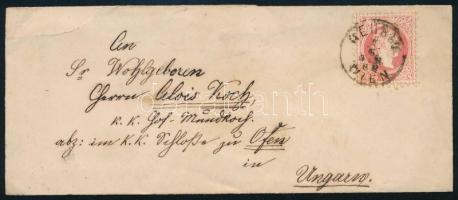 An
Sr Wohlgeboren
Herrn Alois Koch,
k. k. Hof-Mundkoch.
abz: im K. K. Schloße zu Ofen
in
Ungarn.
WIEN